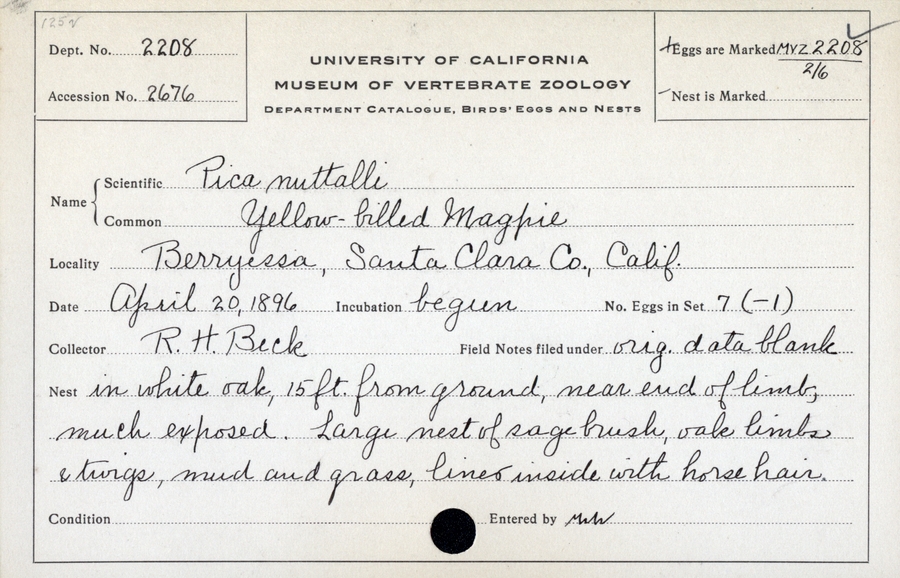 125
Dept. No. 2208
Accession No. 2676
UNIVERSITY OF CALIFORNIA
MUSEUM OF VERTEBRATE ZOOLOGY
DEPARTMENT CATALOGUE, BIRDS' EGGS AND NESTS
Eggs are Marked MVZ 2208
2/6
Nest is Marked
Name
Scientific Pica nuttalli
Common Yellow-billed Magpie
Locality Berryessa, Santa Clara Co., Calif.
Date April 20, 1896 Incubation begun No. Eggs in Set 7 (-1)
Collector R. H. Beck Field Notes filed under orig. data blank
Nest in white oak, 15 ft. from ground, near end of limb,
much exposed. Large nest of sagebrush, oak limbs
& twigs, mud and grass, lined inside with horse hair.
Condition Entered by